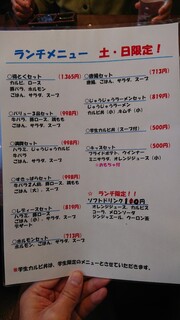 ランチメニュー 土・日限定!
◎得とくセット (1,365円)
カルビ、ロース
豚バラ、ホルモン
ごはん、サラダ、スープ
◎バリュー3品セット (998円)
牛バラ、ロース、鶏もも
ごはん、サラダ、スープ
◎満腹セット (998円)
ハラミ、じゅうじゅうカルビ
牛バラ
ごはん、サラダ、スープ
牛バラ2人前、豚ロース、鶏もも
ごはん(大)、サラダ、スープ
◎レディースセット (819円)
ハラミ、豚ロース
ごはん、サラダ、スープ
デザート
◎ホルモンセット (713円)
ごはん、サラダ、スープ
(713円)
ごはん、サラダ、スープ
◎じゅうじゅうラーメンセット (819円)
じゅうじゅうラーメン
カルビ丼(小)、キムチ(小)
◎学生カルビ丼(スープ付) (500円)
◎キッズセット (500円)
フライドポテト、ウインナー
ミニサラダ、オレンジジュース(小)
☆おもちゃ付
☆ ランチ限定!!
ソフトドリンク 100円
オレンジジュース、カルピス
コーラ、メロンソーダ
ジンジャエール、ウーロン茶
※学生カルビ丼は、学生限定のメニューとさせていただきます。